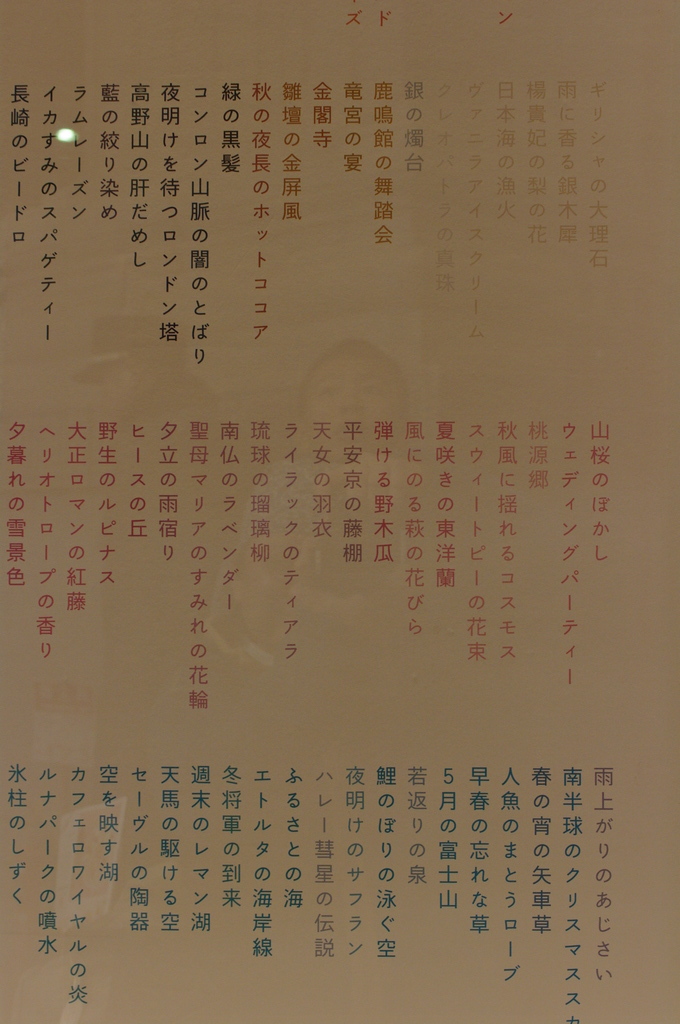 ズ
ド
ン
ギリシャの大理石
雨に香る銀木犀
楊貴妃の梨の花
日本海の漁火
ヴァニラアイスクリーム
クレオパトラの真珠
銀の燭台
鹿鳴館の舞踏会
竜宮の宴
金閣寺
雛壇の金屏風
秋の夜長のホットココア
緑の黒髪
コンロン山脈の闇のとばり
夜明けを待つロンドン塔
高野山の肝だめし
藍の絞り染め
ラムレーズン
イカすみのスパゲティー
長崎のビードロ
山桜のぼかし
ウェディングパーティー
桃源郷
秋風に揺れるコスモス
スウィートピーの花束
夏咲きの東洋蘭
風にのる萩の花びら
弾ける野木瓜
平安京の藤棚
天女の羽衣
ライラックのティアラ
琉球の瑠璃柳
南仏のラベンダー
聖母マリアのすみれの花輪
夕立の雨宿り
ヒースの丘
野生のルピナス
大正ロマンの紅藤
ヘリオトロープの香り
夕暮れの雪景色
雨上がりのあじさい
南半球のクリスマススカ
春の宵の矢車草
人魚のまとうローブ
早春の忘れな草
5月の富士山
若返りの泉
鯉のぼりの泳ぐ空
夜明けのサフラン
ハレー彗星の伝説
ふるさとの海
エトルタの海岸線
冬将軍の到来
週末のレマン湖
天馬の駆ける空
セーヴルの陶器
空を映す湖
カフェロワイヤルの炎
ルナパークの噴水
氷柱のしずく